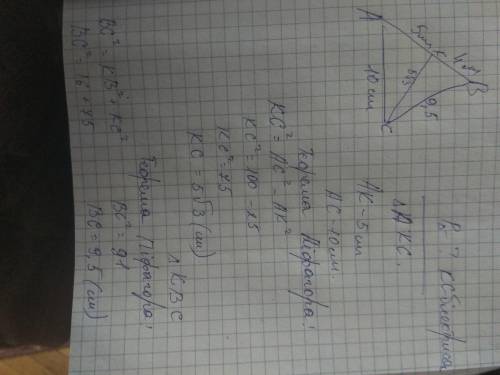 P - ?
A
5см
K
4см
B
10 см
5√3
9,5
C
△AKC
AK - 5 см
AC - 10 см.
Теорема Піфагора!
KC² = AC² - AK²
KC² = 100 - 25
KC² = 75
KC = 5√3 (см)
△KBC
Теорема Піфагора!
BC² = KB² + KC²
BC² = 16 + 75
BC² = 91
BC = 9,5 (см)